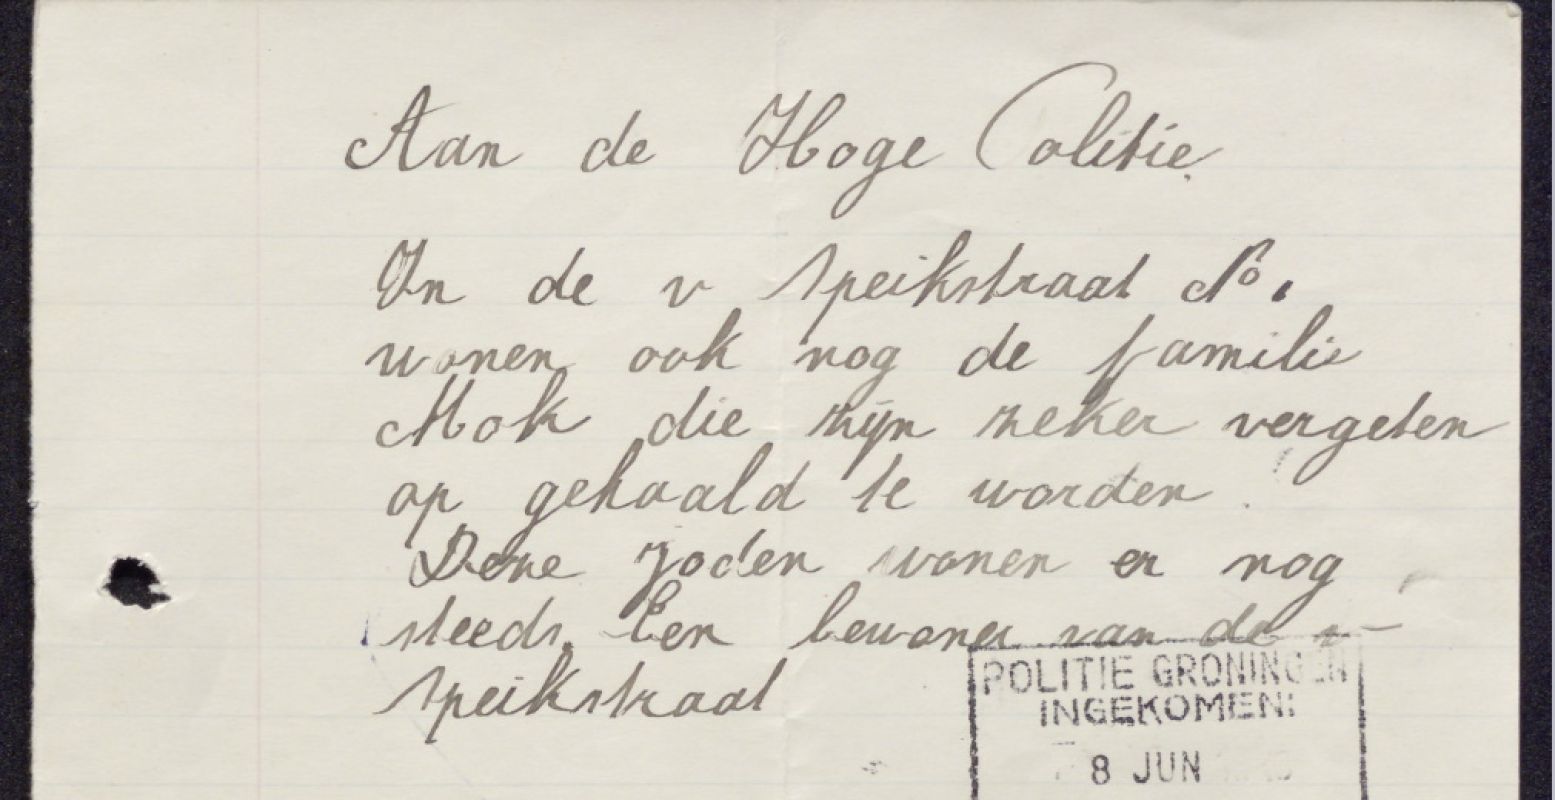 Aan de Hoge Politie.
In de v Speikstraat No 1
wonen ook nog de familie
Mok die zijn zeker vergeten
op gehaald te worden.
Deze Joden wonen er nog
steeds. Een bewoner van de v-
Speikstraat
POLITIE GRONINGEN
INGEKOMEN:
8 JUN